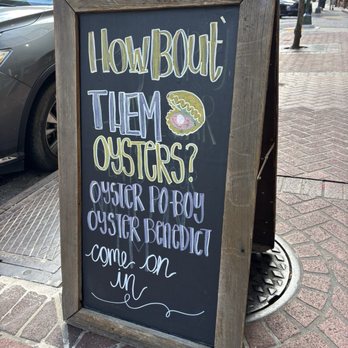 HOWBOUT'
THEM
OYSTERS?
OYSTER PO-BOY
OYSTER BENEDICT
come on
in